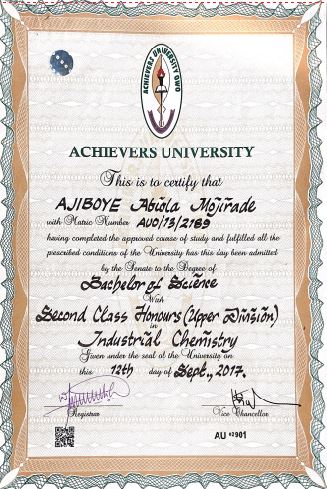 ACHIEVERS UNIVERSITY OWO
ACHIEVERS UNIVERSITY
This is to certify that
AJIBOYE Abiola Mojirade
with Matric Number AUO/13/2189
having completed the approved course of study and fulfilled all the
prescribed conditions of the University has this day been admitted
by the Senate to the Degree of
Bachelor of Science
With
Second Class Honours (Upper Division)
in
Industrial Chemistry
Given under the seal of the University on
this 12th day of Sept., 2017.
Registrar
Vice Chancellor
AU 02901